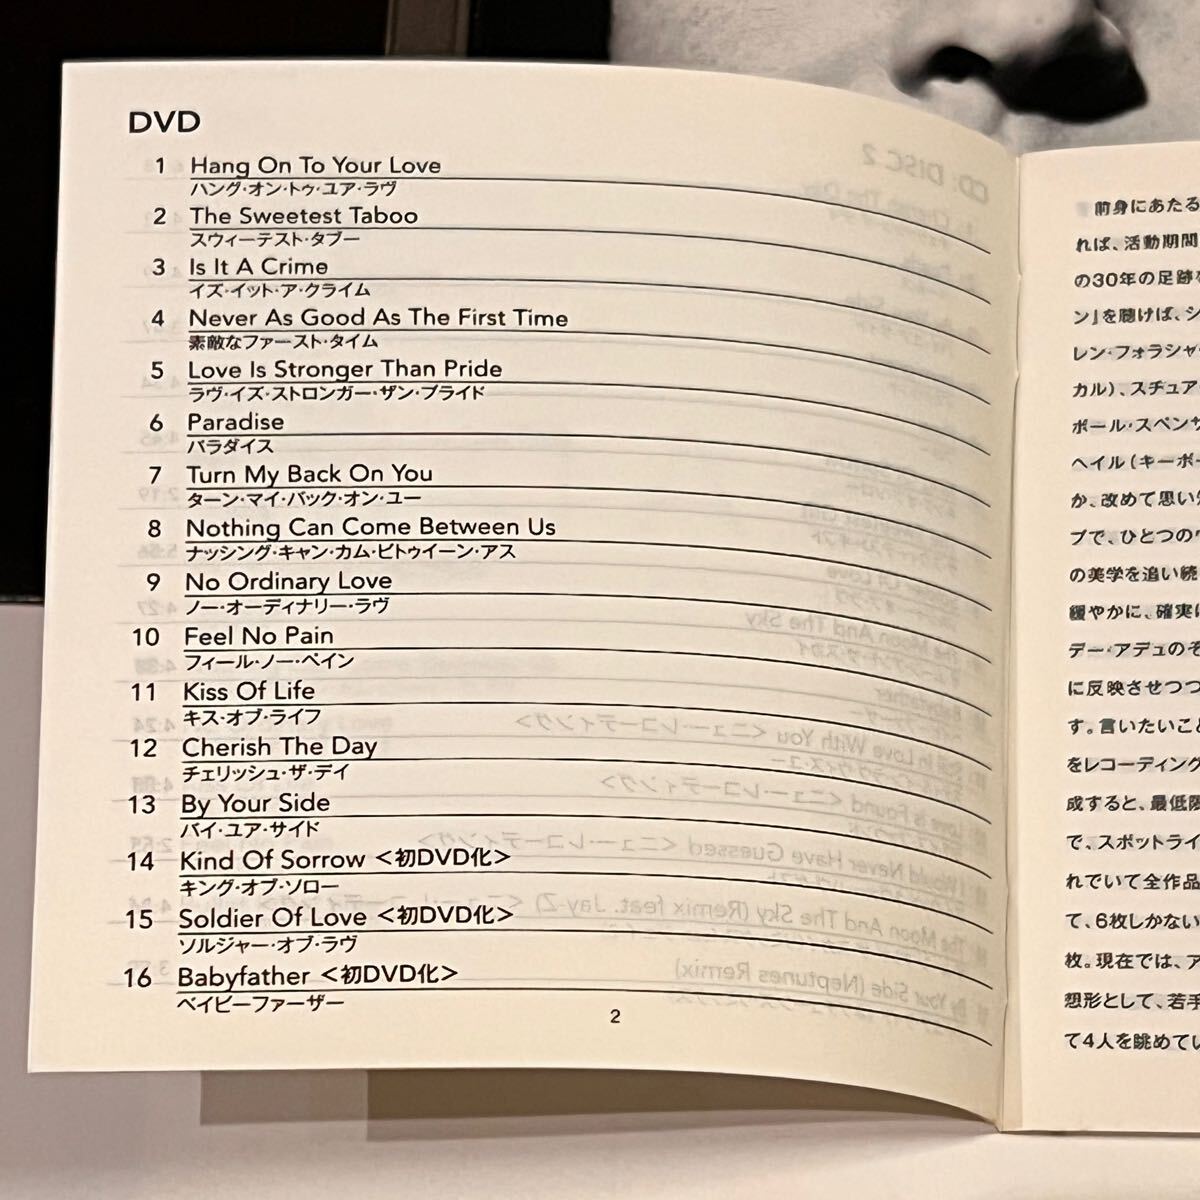 DVD
1 Hang On To Your Love
ハング・オン・トゥ・ユア・ラヴ
2 The Sweetest Taboo
スウィーテスト・タブー
3 Is It A Crime
イズ・イット・ア・クライム
4 Never As Good As The First Time
素敵なファースト・タイム
5 Love Is Stronger Than Pride
ラヴ・イズ・ストロンガー・ザン・プライド
6 Paradise
パラダイス
7 Turn My Back On You
ターン・マイ・バック・オン・ユー
8 Nothing Can Come Between Us
ナッシング・キャン・カム・ビトゥイーン・アス
9 No Ordinary Love
ノー・オーディナリー・ラヴ
10 Feel No Pain
フィール・ノー・ペイン
11 Kiss Of Life
キス・オブ・ライフ
12 Cherish The Day
チェリッシュ・ザ・デイ
13 By Your Side
バイ・ユア・サイド
14 Kind Of Sorrow <初DVD化>
キング・オブ・ソロー
15 Soldier Of Love <初DVD化>
ソルジャー・オブ・ラヴ
16 Babyfather <初DVD化>
ベイビーファーザー
2
前身にあたる
れば、活動期間
の30年の足跡
ン』を聴けば、シ
レン・フォラシャ
カル)、スチュア
ポール・スペンサ
ヘイル(キーボー
か、改めて思い
プで、ひとつの
の美学を追い続
緩やかに、確実に
デー・アデュのそ
に反映させつつ
す。言いたいこ
をレコーディング
成すると、最低限
で、スポットライ
れでいて全作品
て、6枚しかない
枚。現在では、ア
想形として、若手
て4人を眺めてい